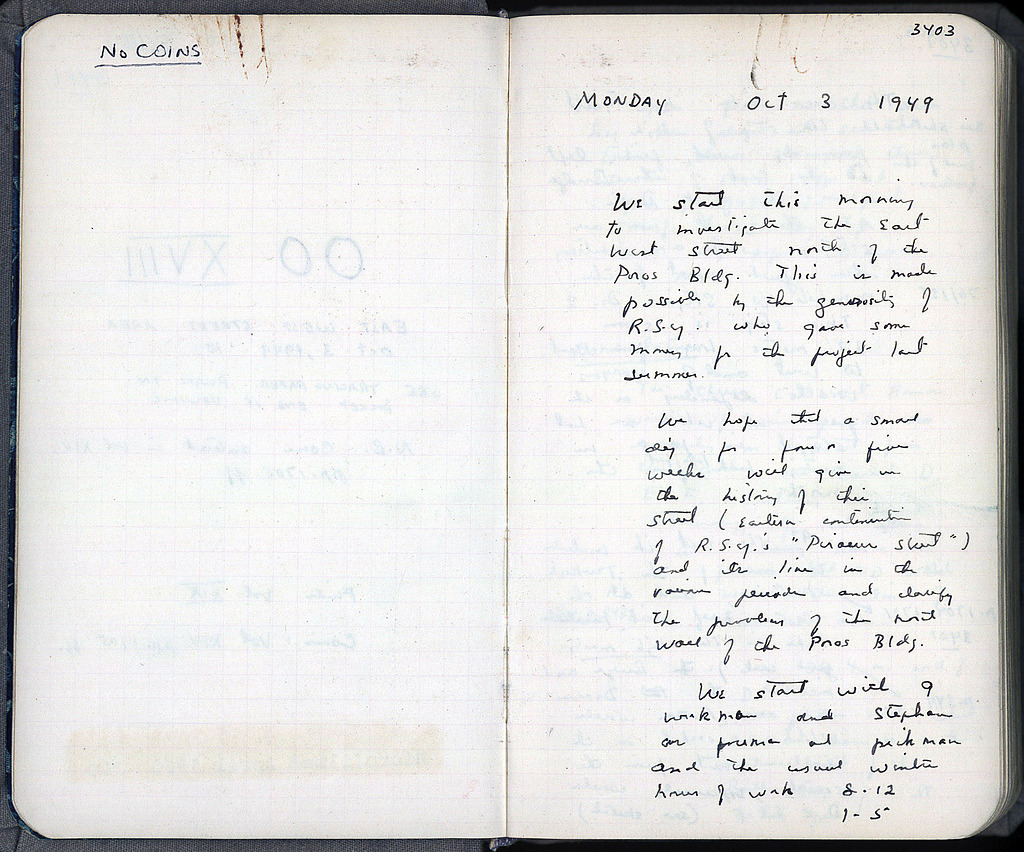 No COINS
3403
MONDAY Oct 3 1949
We start this morning
to investigate the East
West street north of the
Poros Bldg. This is made
possible by the generosity of
R.S.Y. who gave some
money for the project last
summer.
We hope that a small
dig for four or five
weeks will give us
the history of this
street (Eastern continuation
of R.S.Y.'s "Piraeus Street")
and its line in the
various periods and clarify
the problems of the north
wall of the Poros Bldg.
We start with 9
workmen and Stephan
as pickman
and the usual winter
hours of work 8-12
1-5
OO XVIII
EAST WEST STREET AREA
Oct 3, 1949